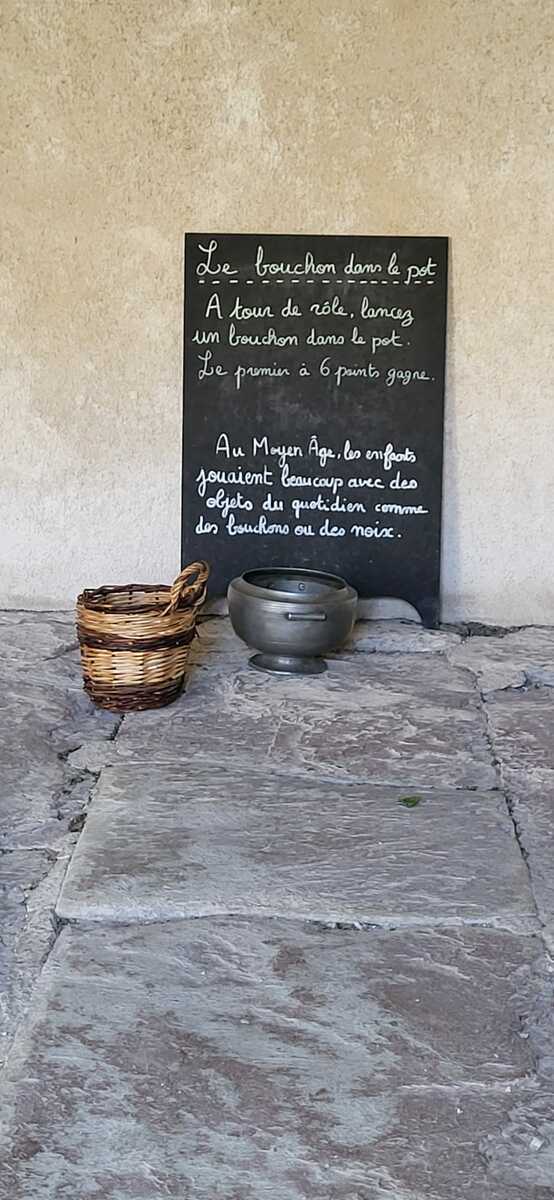 Le bouchon dans le pot
A tour de rôle, lancez
un bouchon dans le pot.
Le premier à 6 points gagne.
Au Moyen Âge, les enfants
jouaient beaucoup avec des
objets du quotidien comme
des bouchons ou des noix.